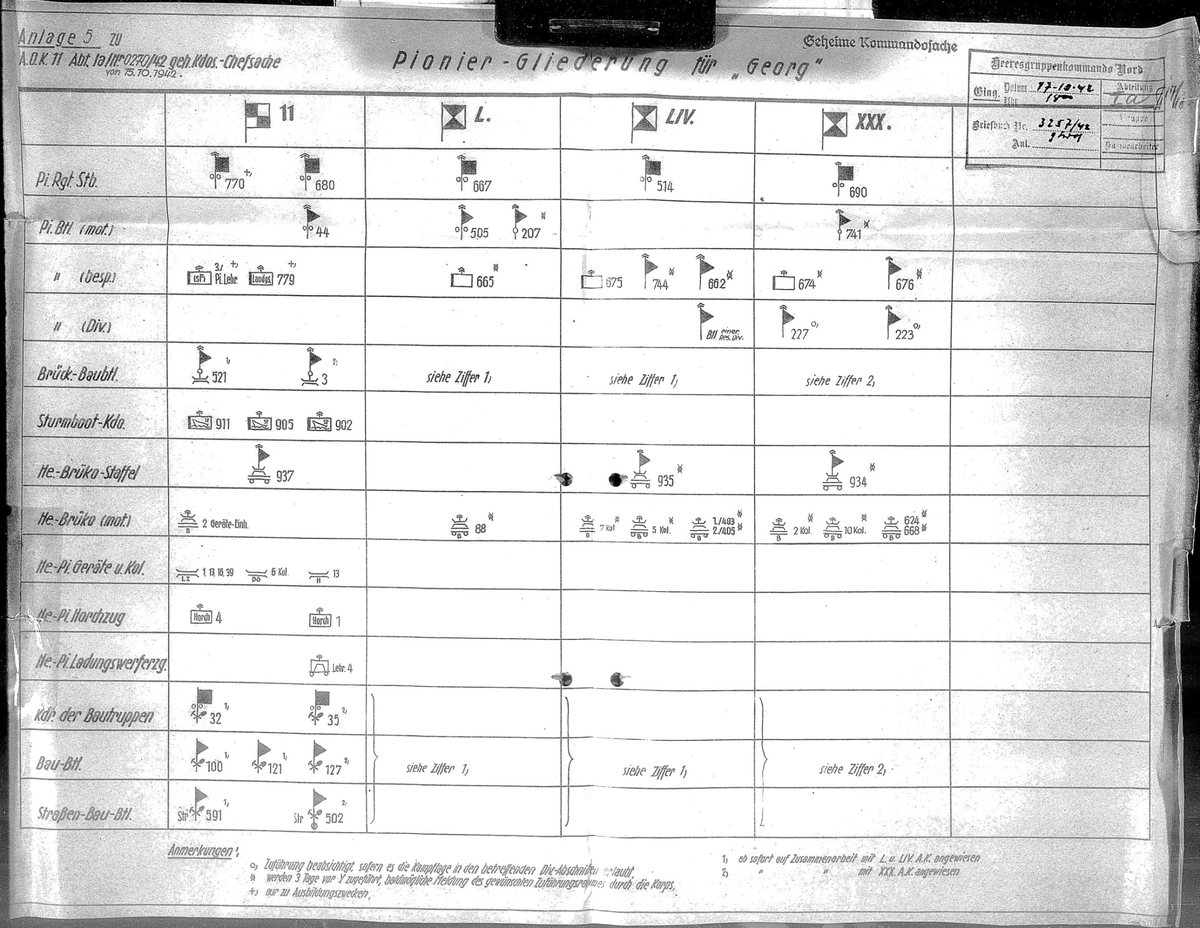 Anlage 5 zu
A.O.K. 11 Abt. Ia Nr 0270/42 geh. Kdos.-Chefsache
vom 15.10.1942.
Pionier-Gliederung für „Georg"
Geheime Kommandosache
Heeresgruppenkommando Nord
Eing. Datum 17-10-42 Abteilung
Uhr Ia
Briefbuch Nr. 3257/42 Gruppe
Anl. Sachbearbeiter
11 L. LIV. XXX.
Pi. Rgt. Stb. 770 +) 680 667 514 690
Pi. Btl. (mot.) 44 505 207 ※ 741 ※
" (besp.) 3./Pi. Lehr +) Landgs. 779 +) 665 ※ 675 744 ※ 662 ※ 674 ※ 676 ※
" (Div.) Btl. einer Res. Div. 227 o) 223 o)
Brück-Baubtl. 521 1) 3 2) siehe Ziffer 1) siehe Ziffer 1) siehe Ziffer 2)
Sturmboot-Kdo. 911 905 902
He.-Brüko-Staffel 937 935 ※ 934 ※
He-Brüko (mot.) B 2 Geräte-Einh. B 68 ※ B 7 Kol ※ B 5 Kol. ※ B 1./403 ※ 2./405 ※ B 2 Kol. ※ B 10 Kol. ※ B 624 668 ※
He-Pi. Geräte u. Kol. LZ 1, 13, 16, 39 Dö 6 Kol. H 13
He-Pi. Horchzug Horch 4 Horch 1
He-Pi. Ladungswerferzg. Lehr. 4
Kdr. der Bautruppen 32 1) 35 2)
Bau-Btl. 100 1) 121 1) 127 2) siehe Ziffer 1) siehe Ziffer 1) siehe Ziffer 2)
Straßen-Bau-Btl. Str 591 1) Str 502 2)
Anmerkungen:
o) Zuführung beabsichtigt, sofern es die Kampflage in den betreffenden Div.-Abschnitten erlaubt,
※ werden 3 Tage vor Y zugeführt, baldmögliche Meldung des gewünschten Zuführungsraumes durch die Korps,
+) nur zu Ausbildungszwecken,
1) ab sofort auf Zusammenarbeit mit L. u. LIV. A.K. angewiesen
2) " " mit XXX. A.K. angewiesen